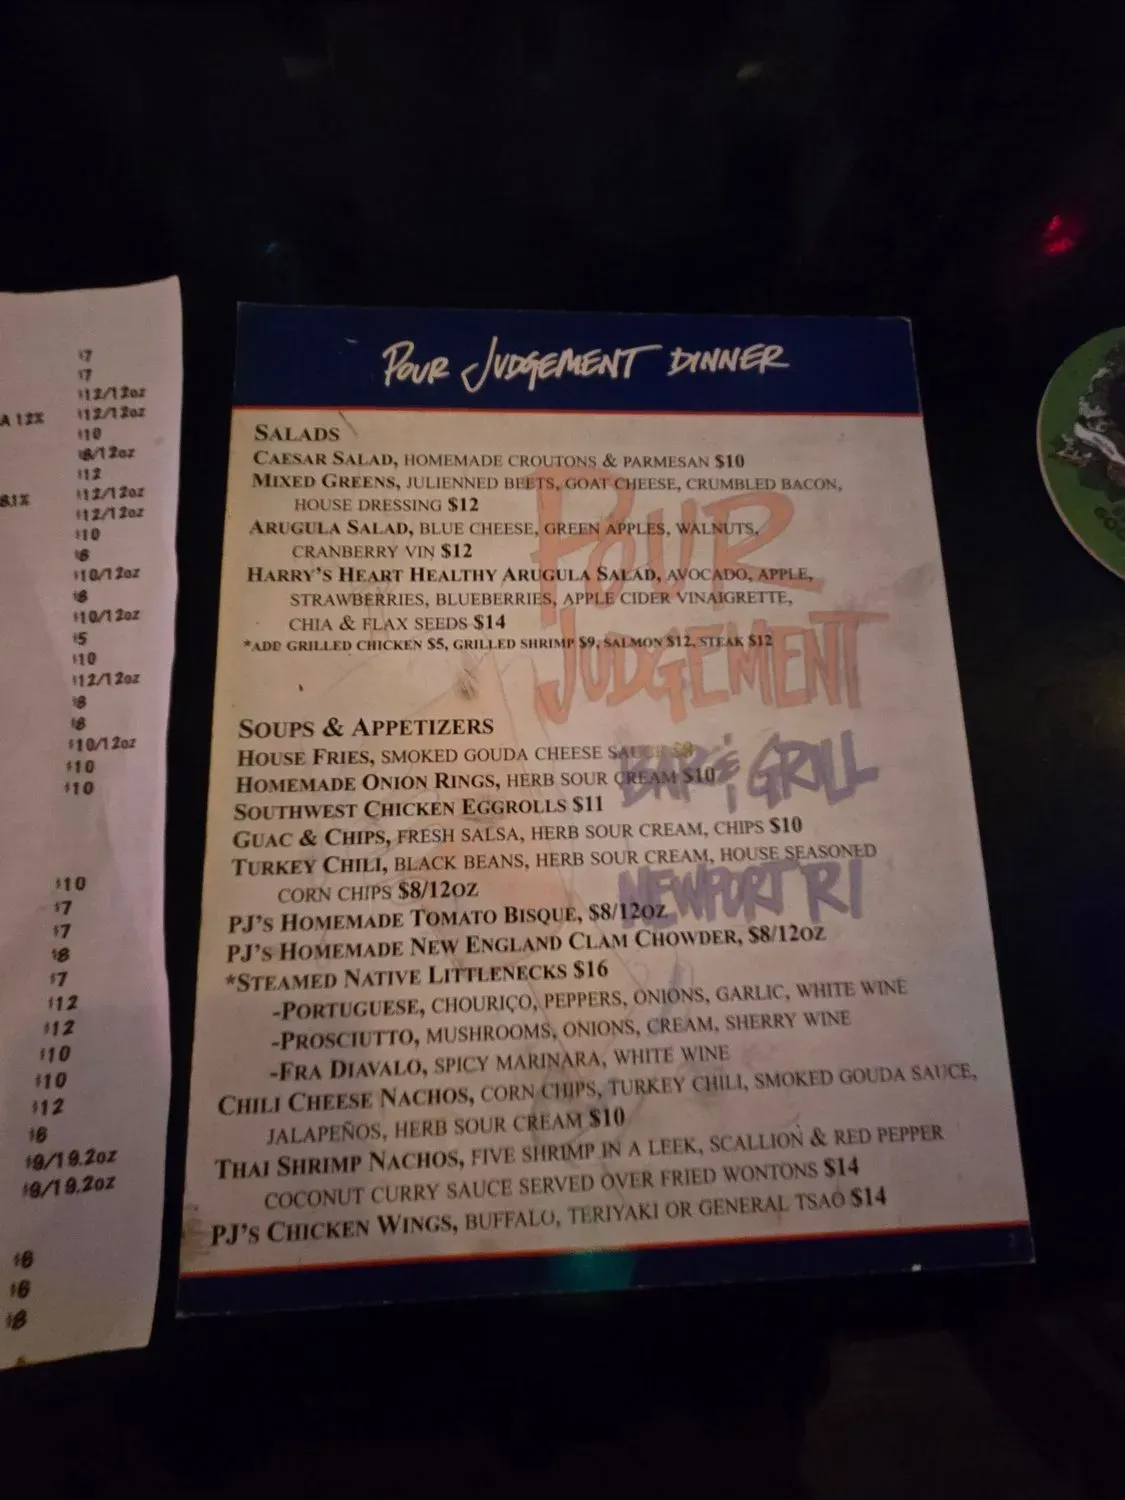 $7
$7
$12/12oz
A 12% $12/12oz
$10
$8/12oz
$12
8.1% $12/12oz
$12/12oz
$10
$8
$10/12oz
$8
$10/12oz
$5
$10
$12/12oz
$8
$8
$10/12oz
$10
$10
$10
$7
$7
$8
$7
$12
$12
$10
$10
$12
$6
$9/19.2oz
$9/19.2oz
$6
$6
$8
POUR JUDGEMENT DINNER
SALADS
CAESAR SALAD, HOMEMADE CROUTONS & PARMESAN $10
MIXED GREENS, JULIENNED BEETS, GOAT CHEESE, CRUMBLED BACON,
HOUSE DRESSING $12
ARUGULA SALAD, BLUE CHEESE, GREEN APPLES, WALNUTS,
CRANBERRY VIN $12
HARRY'S HEART HEALTHY ARUGULA SALAD, AVOCADO, APPLE,
STRAWBERRIES, BLUEBERRIES, APPLE CIDER VINAIGRETTE,
CHIA & FLAX SEEDS $14
*ADD GRILLED CHICKEN $5, GRILLED SHRIMP $9, SALMON $12, STEAK $12
SOUPS & APPETIZERS
HOUSE FRIES, SMOKED GOUDA CHEESE SAUCE
HOMEMADE ONION RINGS, HERB SOUR CREAM $10
SOUTHWEST CHICKEN EGGROLLS $11
GUAC & CHIPS, FRESH SALSA, HERB SOUR CREAM, CHIPS $10
TURKEY CHILI, BLACK BEANS, HERB SOUR CREAM, HOUSE SEASONED
CORN CHIPS $8/12OZ
PJ'S HOMEMADE TOMATO BISQUE, $8/12OZ
PJ'S HOMEMADE NEW ENGLAND CLAM CHOWDER, $8/12OZ
*STEAMED NATIVE LITTLENECKS $16
-PORTUGUESE, CHOURIÇO, PEPPERS, ONIONS, GARLIC, WHITE WINE
-PROSCIUTTO, MUSHROOMS, ONIONS, CREAM, SHERRY WINE
-FRA DIAVALO, SPICY MARINARA, WHITE WINE
CHILI CHEESE NACHOS, CORN CHIPS, TURKEY CHILI, SMOKED GOUDA SAUCE,
JALAPEÑOS, HERB SOUR CREAM $10
THAI SHRIMP NACHOS, FIVE SHRIMP IN A LEEK, SCALLION & RED PEPPER
COCONUT CURRY SAUCE SERVED OVER FRIED WONTONS $14
PJ'S CHICKEN WINGS, BUFFALO, TERIYAKI OR GENERAL TSAO $14
POUR
JUDGEMENT
BAR & GRILL
NEWPORT RI